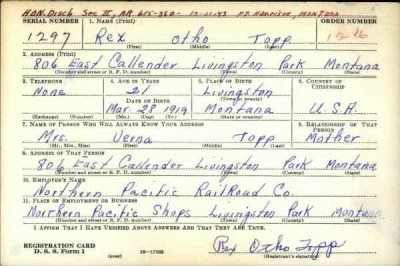 HON. DISCH SEC II, AR 615-360- 12-21-43 FT. HARRISON, MONTANA
SERIAL NUMBER 1. NAME (Print) ORDER NUMBER
1297 Rex Otho Topp
(First) (Middle) (Last)
2. ADDRESS (Print)
806 East Callender Livingston Park Montana
(Number and street or R. F. D. number) (Town) (County) (State)
3. TELEPHONE 4. AGE IN YEARS 5. PLACE OF BIRTH 6. COUNTRY OF CITIZENSHIP
None 21 Livingston
DATE OF BIRTH (Town or county)
Mar. 28 1919 Montana U.S.A.
(Exchange) (Number) (Mo.) (Day) (Yr.) (State or country)
7. NAME OF PERSON WHO WILL ALWAYS KNOW YOUR ADDRESS 8. RELATIONSHIP OF THAT PERSON
Mrs. Verna Topp Mother
(Mr., Mrs., Miss) (First) (Middle) (Last)
9. ADDRESS OF THAT PERSON
806 East Callender Livingston Park Montana
(Number and street or R. F. D. number) (Town) (County) (State)
10. EMPLOYER'S NAME
Northern Pacific RailRoad Co.
11. PLACE OF EMPLOYMENT OR BUSINESS
Northern Pacific Shops Livingston Park Montana
(Number and street or R. F. D. number) (Town) (County) (State)
I AFFIRM THAT I HAVE VERIFIED ABOVE ANSWERS AND THAT THEY ARE TRUE.
REGISTRATION CARD
D. S. S. Form 1 16-17105
Rex Otho Topp
(Registrant's signature)